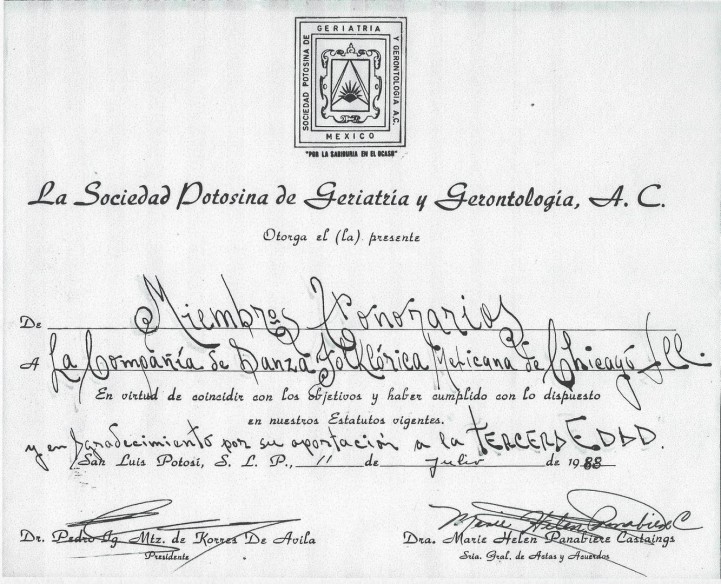 GERIATRIA
SOCIEDAD POTOSINA DE
Y GERONTOLOGIA A.C.
MEXICO
"POR LA SABIDURIA EN EL OCASO"
La Sociedad Potosina de Geriatría y Gerontología, A. C.
Otorga el (la) presente
De Miembros Honorarios
A La Compañía de Danza Folklórica Mexicana de Chicago Ill.
En virtud de coincidir con los objetivos y haber cumplido con lo dispuesto
en nuestros Estatutos vigentes.
y en agradecimiento por su aportación a la TERCERA EDAD.
San Luis Potosí, S. L. P., 11 de julio de 1988
Marie Helen Panabiere C
Dr. Pedro Ig Mtz. de Korres De Avila
Dra. Marie Helen Panabiere Castaings
Presidente
Sria. Gral. de Actas y Acuerdos